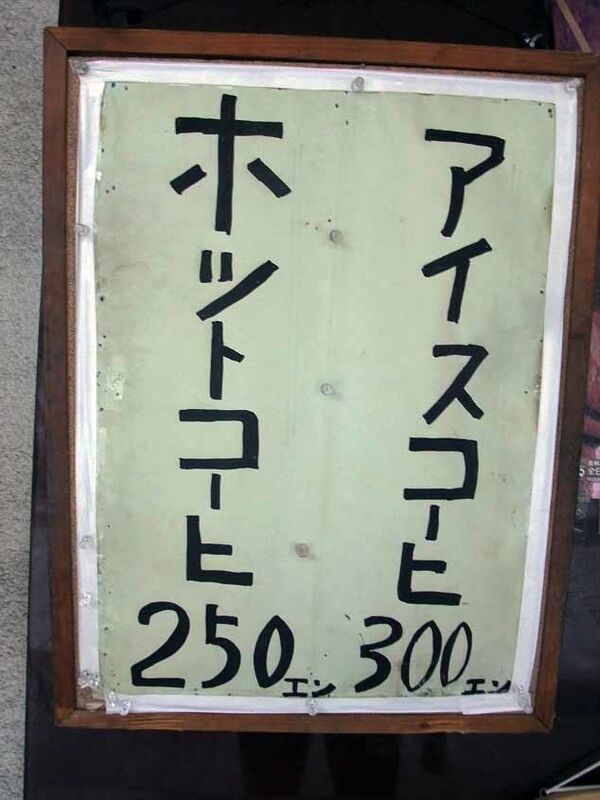 アイスコーヒ
300エン
ホットコーヒ
250エン